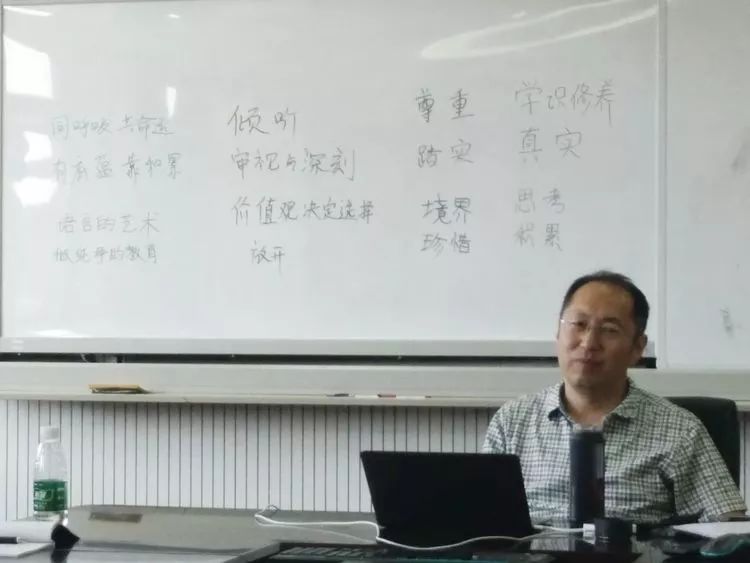 同呼吸 共命运 倾听 尊重 学识修养
有 靠积累 审视与深刻 踏实 真实
语言的艺术 价值观决定选择 境界 思考
的教育 放开 珍惜 积累